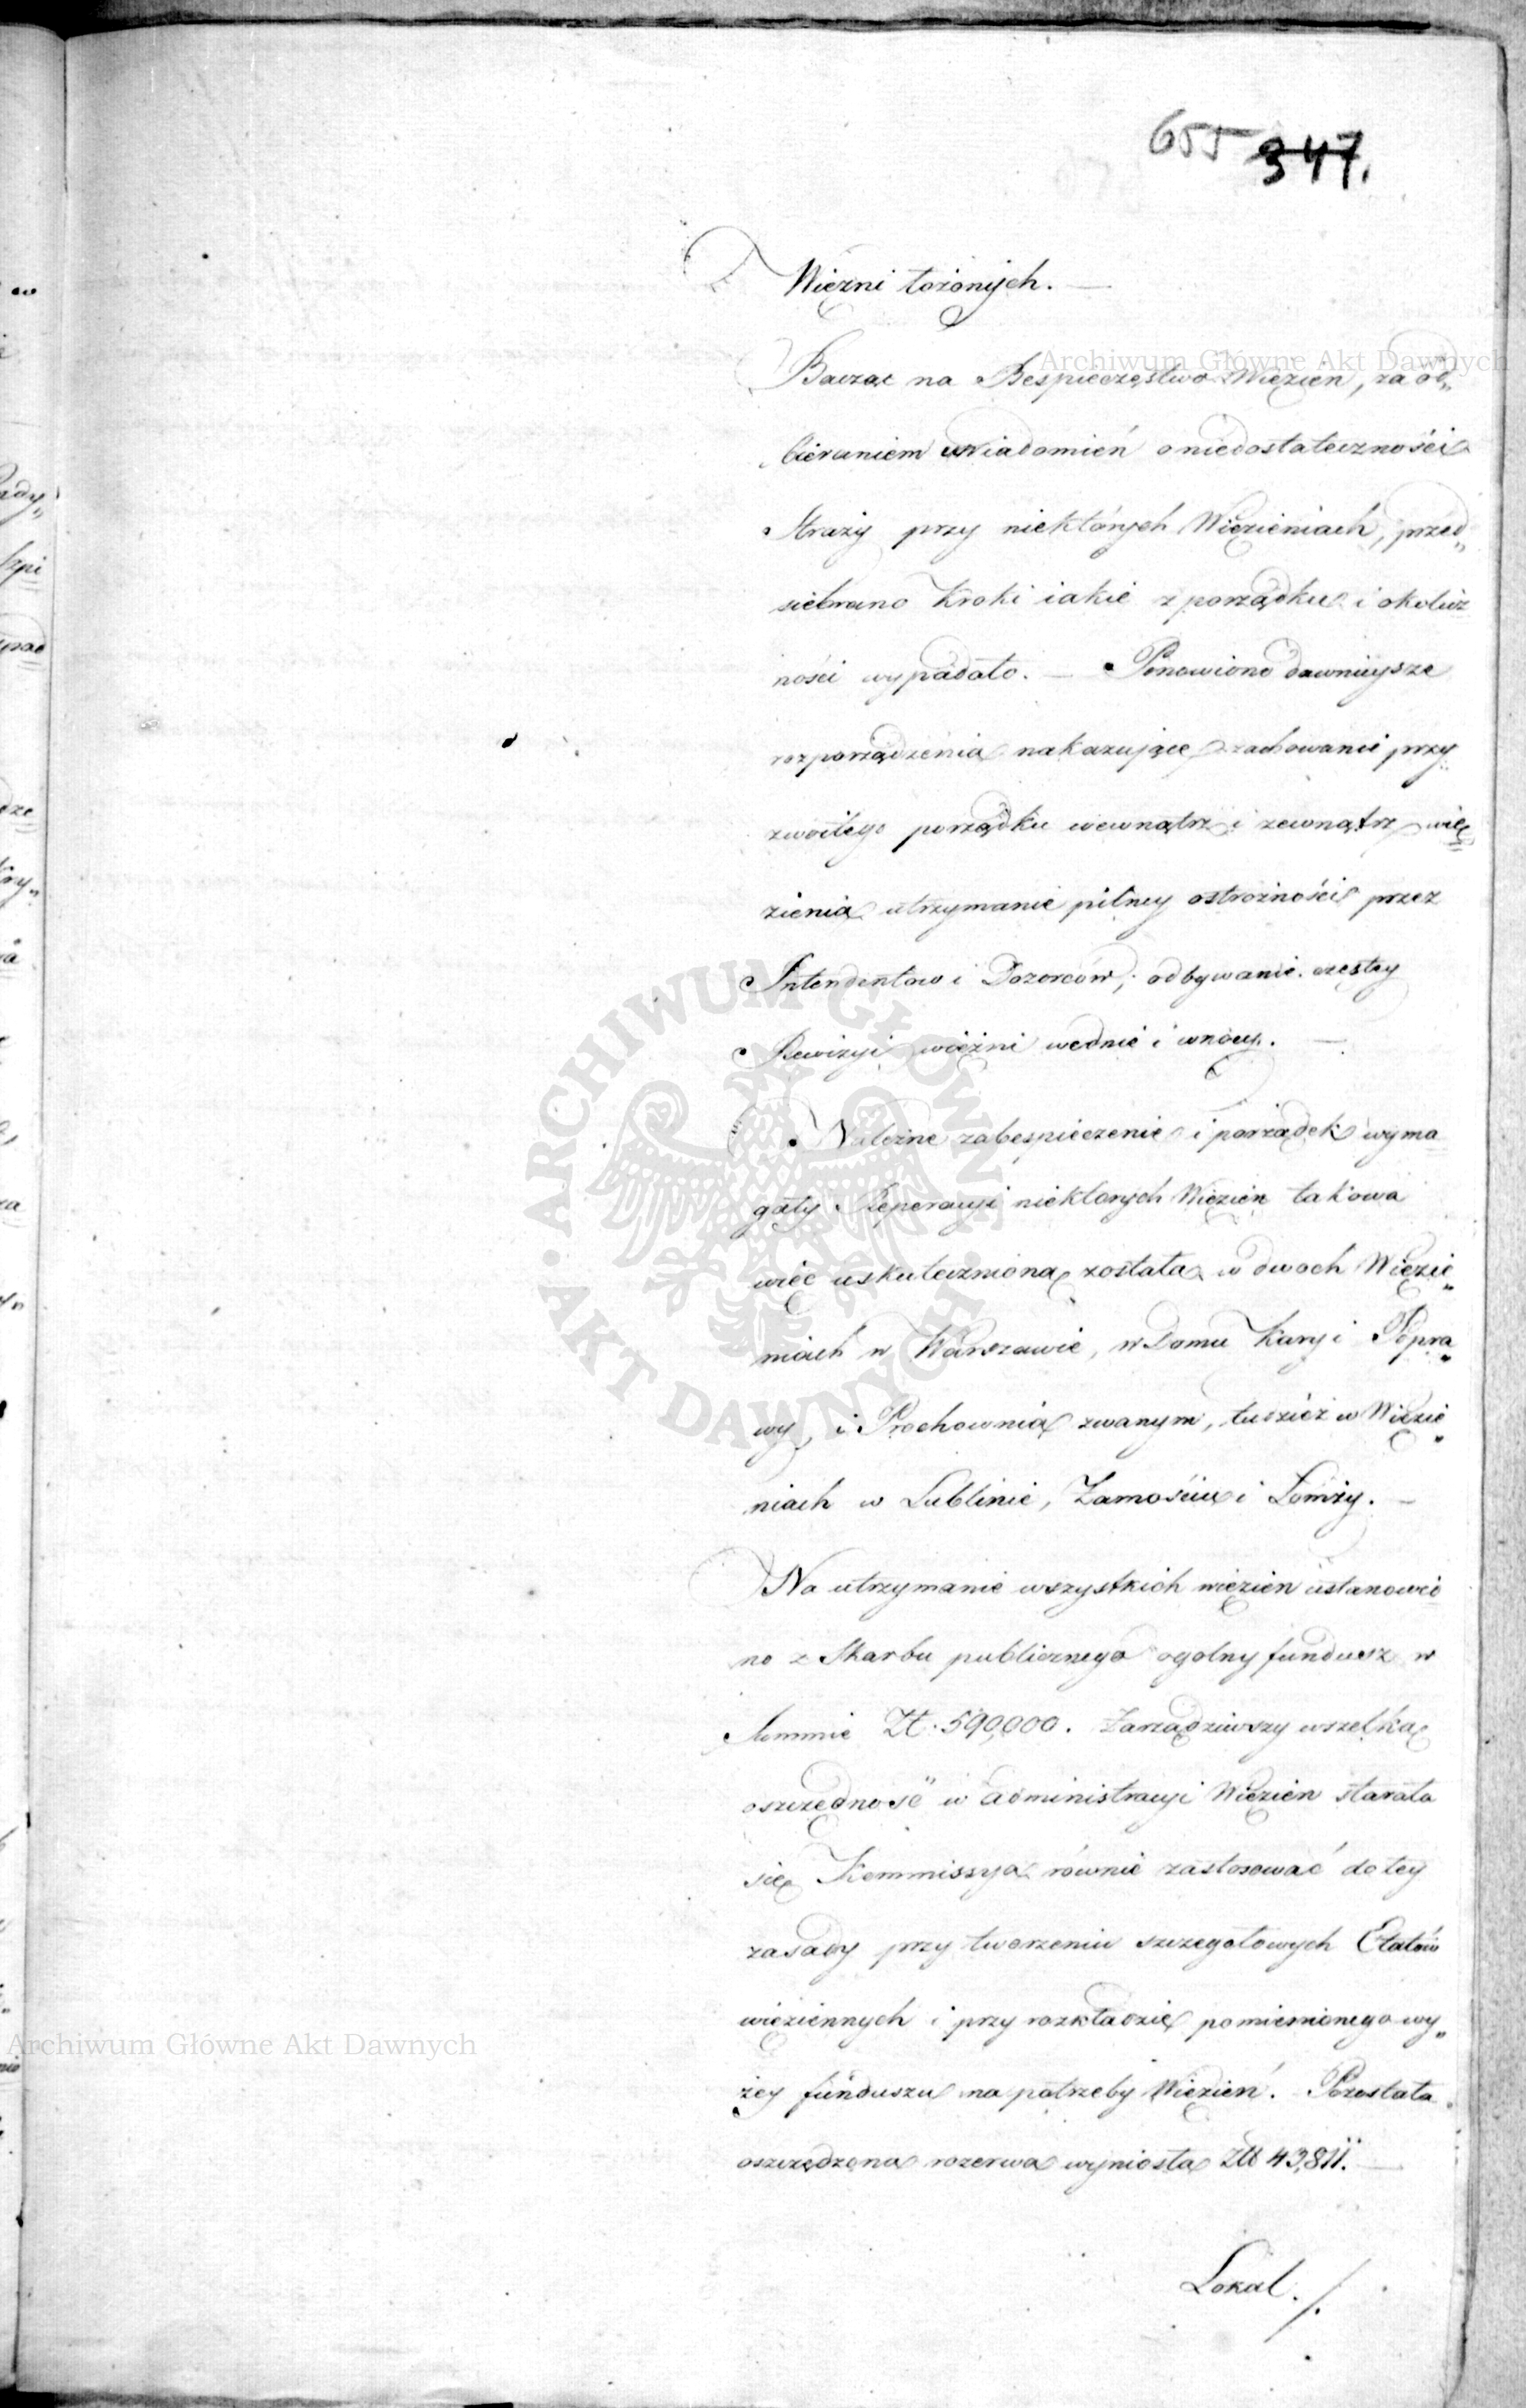 655 347.
Więzni łożonych. —
Bacząc na Bespieczęstwo Więzien, za od„
bieraniem uwiadomień o niedostateczności
Straży przy niektórych Więzieniach, przed„
siebrano kroki iakie z porządku i okolicz
ności wypadało. — Ponowiono dawnieysze
rozporządzenia nakazuiące zachowanie przy
zwoitego porządku wewnątrz i zewnątrz wię
zienia utrzymanie pilney ostrożności przez
Intendentow i Dozorców, odbywanie częstey
Rewizyi więźni wednie i wnocy. —
Należne zabespieczenie i porządek wyma
gały Reperacyi niektorych Więzien takowa
więc uskutecznioną została w dwoch Więzie„
niach w Warszawie, w Domu Kary i Popra„
wy, i Prochownią zwanym, tudzież w Więzie„
niach w Lublinie, Zamościu i Łomży. —
Na utrzymanie wszystkich więzien ustanowio
no z Skarbu publicznego ogolny fundusz w
Summie Zł. 590,000. Zarządziwszy wszelką
oszczędność w administracyi Więzien starała
się Kommissya równie zastosować do tey
zasady przy tworzeniu szczegołowych Etatów
więziennych i przy rozkładzie pomienionego wy„
żey funduszu na potrzeby Więzień. Pozostała
oszczędzona rezerwa wyniosła Złł 43,811. —
Lokal. /.
Archiwum Główne Akt Dawnych
ARCHIWUM GŁÓWNE · AKT DAWNYCH ·
Archiwum Główne Akt Dawnych